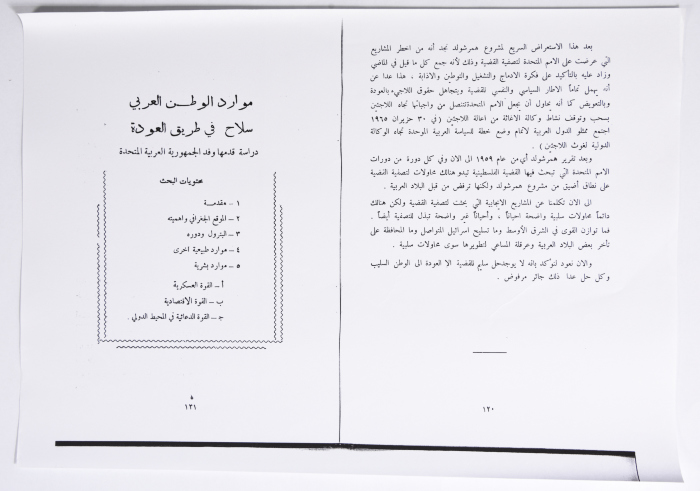 بعد هذا الاستعراض السريع لمشروع همرشولد نجد أنه من اخطر المشاريع
التي عرضت على الامم المتحدة لتصفية القضية وذلك لأنه جمع كل ما قيل في الماضي
وزاد عليه بالتأكيد على فكرة الادماج والتشغيل والتوطين والاذابة ، هذا عدا عن
أنه يهمل تماماً الاطار السياسي والنفسي للقضية ويتجاهل حقوق اللاجيء بالعودة
وبالتعويض كما أنه يحاول أن يجعل الامم المتحدة تتنصل من واجباتها تجاه اللاجئين
بسحب وتوقف نشاط وكالة الاغاثة من اعالة اللاجئين ( في ٣٠ حزيران ١٩٦٥
اجتمع ممثلو الدول العربية لاتمام وضع خطة للسياسة العربية الموحدة تجاه الوكالة
الدولية لغوث اللاجئين ) .
وبعد تقرير همرشولد أي من عام ١٩٥٩ الى الان وفي كل دورة من دورات
الامم المتحدة التي تبحث فيها القضية الفلسطينية تبدو هنالك محاولات لتصفية القضية
على نطاق أضيق من مشروع همرشولد ولكنها ترفض من قبل البلاد العربية .
الى الان تكلمنا عن المشاريع الايجابية التي بحثت لتصفية القضية ولكن هنالك
دائماً محاولات سلبية واضحة احياناً ، وأحياناً غير واضحة تبذل للتصفية أيضاً .
فما توازن القوى في الشرق الأوسط وما تسليح اسرائيل المتواصل وما المحافظة على
تأخر بعض البلاد العربية وعرقلة المساعي لتطويرها سوى محاولات سلبية .
والان نعود لنؤكد بانه لا يوجد حل سليم للقضية الا العودة الى الوطن السليب
وكل حل عدا ذلك جائر مرفوض .
١٢٠
موارد الوطن العربي
سلاح في طريق العودة
دراسة قدمها وفد الجمهورية العربية المتحدة
محتويات البحث
١ - مقدمة
٢ - الموقع الجغرافي واهميته
٣ - البترول ودوره
٤ - موارد طبيعية اخرى
٥ - موارد بشرية
أ - القوة العسكرية
ب - القوة الاقتصادية
ج - القوة الدعائية في المحيط الدولي .
١٢١